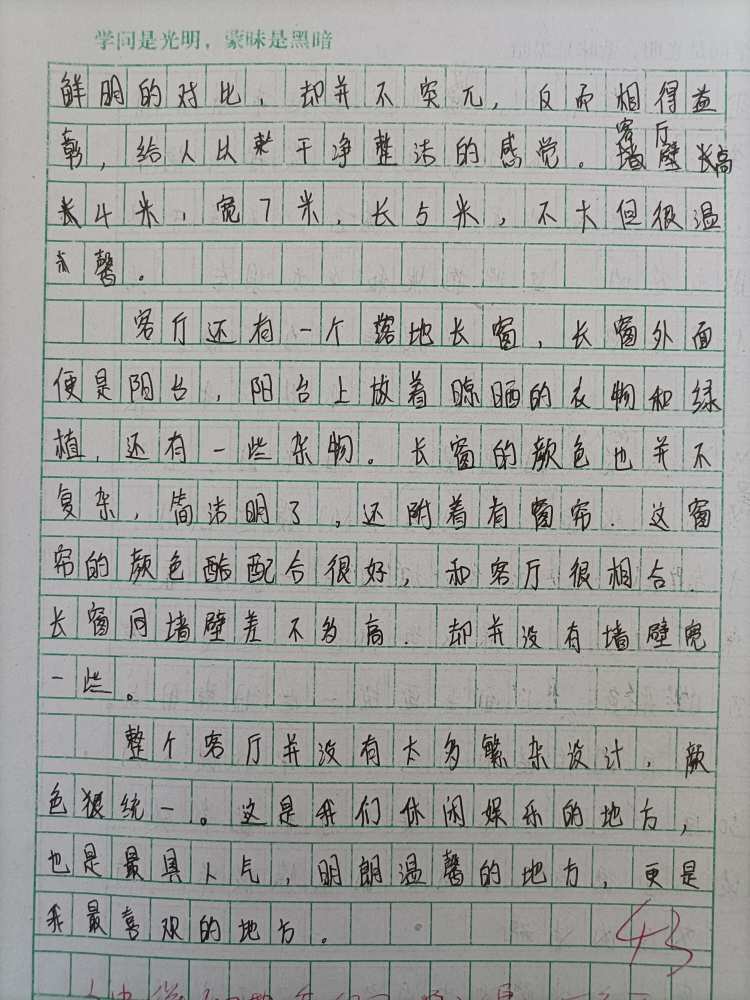 学问是光明，蒙昧是黑暗
鲜明的对比，却并不突兀，反而相得益
彰，给人以干净整洁的感觉。客厅墙壁高
4米，宽7米，长5米，不大但很温
馨。
客厅还有一个落地长窗，长窗外面
便是阳台，阳台上放着晾晒的衣物和绿
植，还有一些杂物。长窗的颜色也并不
复杂，简洁明了，还附着有窗帘．这窗
帘的颜色配合很好，和客厅很相合．
长窗同墙壁差不多高．却并没有墙壁宽
一些。
整个客厅并没有太多繁杂设计，颜
色很统一。这是我们休闲娱乐的地方，
也是最具人气，明朗温馨的地方，更是
我最喜欢的地方。
43